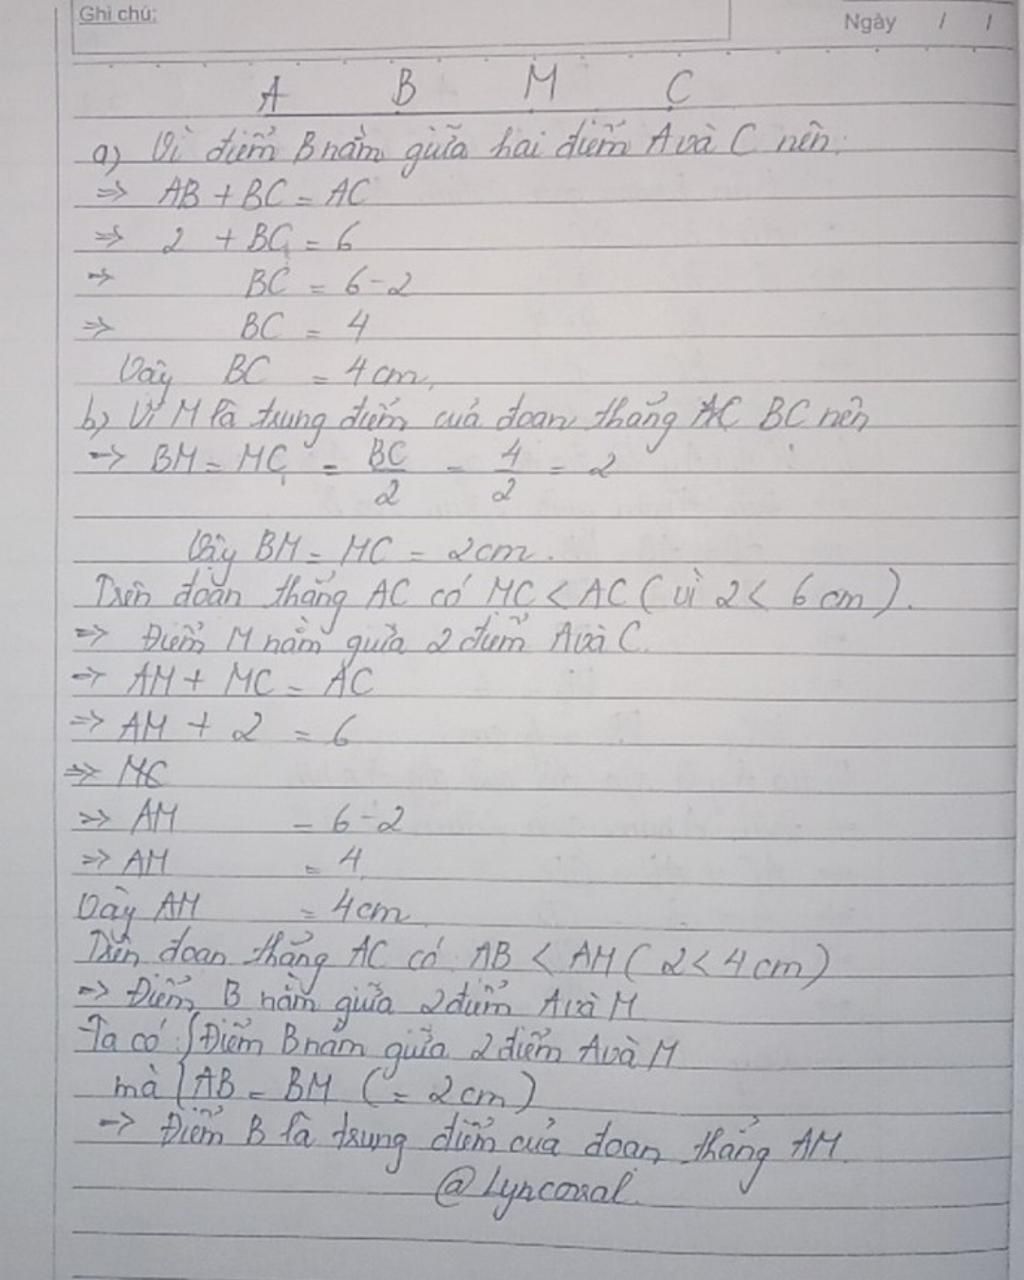 Ghi chú:
Ngày / /
A B M C
a) Vì điểm B nằm giữa hai điểm A và C nên:
=> AB + BC = AC
=> 2 + BC = 6
=> BC = 6 - 2
=> BC = 4
Vậy BC = 4 cm.
b) Vì M là trung điểm của đoạn thẳng AC BC nên
=> BM = MC = BC/2 = 4/2 = 2
Vậy BM = MC = 2 cm.
Trên đoạn thẳng AC có MC < AC ( vì 2 < 6 cm ).
=> Điểm M nằm giữa 2 điểm A và C.
=> AM + MC = AC
=> AM + 2 = 6
=> MC
=> AM = 6 - 2
=> AM = 4
Vậy AM = 4 cm
Trên đoạn thẳng AC có AB < AM ( 2 < 4 cm )
=> Điểm B nằm giữa 2 điểm A và M
Ta có { Điểm B nằm giữa 2 điểm A và M
mà { AB = BM ( = 2 cm )
=> Điểm B là trung điểm của đoạn thẳng AM.